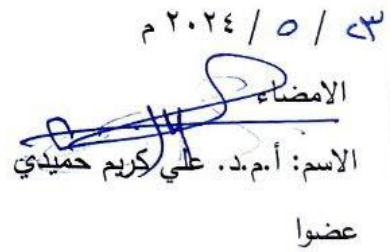 ٢٣ / ٥ / ٢٠٢٤ م
الامضاء
الاسم: أ.م.د. علي كريم حميدي
عضوا